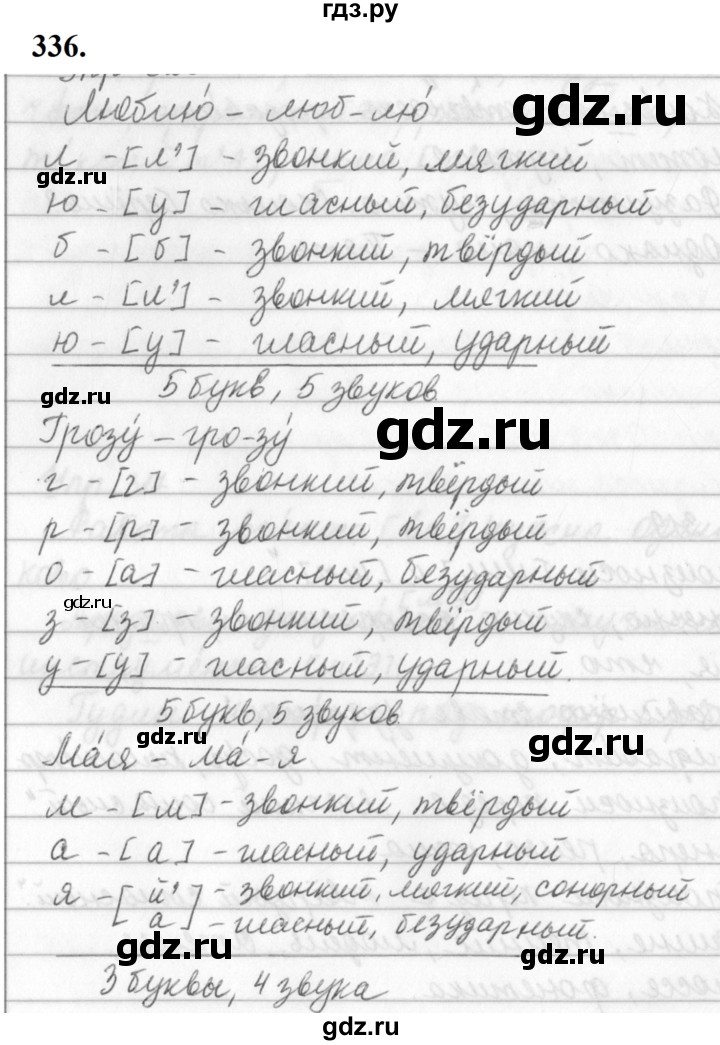 гдз.ру
336.
Люблю́ – люб-лю́
л – [л’] – звонкий, мягкий
ю – [у] – гласный, безударный
б – [б] – звонкий, твёрдый
л – [л’] – звонкий, мягкий
ю – [у] – гласный, ударный
5 букв, 5 звуков
Грозу́ – гро-зу́
г – [г] – звонкий, твёрдый
р – [р] – звонкий, твёрдый
о – [а] – гласный, безударный
з – [з] – звонкий, твёрдый
у – [у́] – гласный, ударный.
5 букв, 5 звуков
Ма́я – ма́-я
м – [м] – звонкий, твёрдый
а – [а] – гласный, ударный
я – [й’] – звонкий, мягкий, сонорный
[а] – гласный, безударный.
3 буквы, 4 звука
gdz.ru
gdz.ru
gdz.ru
gdz.ru
gdz.ru
gdz.ru
gdz.ru
gdz.ru
gdz.ru
gdz.ru